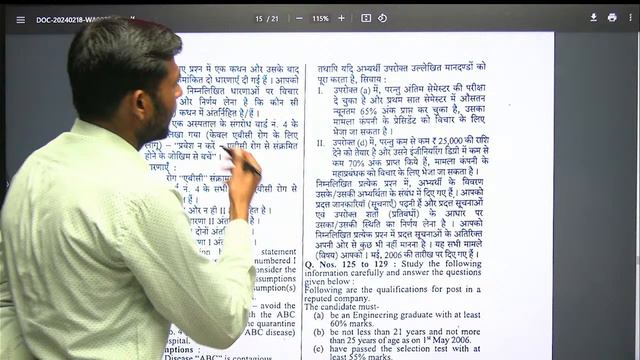 DOC-20240218-WA
15 / 21
115%
ए प्रश्न में एक कथन और उसके बाद
मांकित दो धारणाएँ दी गई हैं। आपको
निम्नलिखित धारणाओं पर विचार
और निर्णय लेना है कि कौन सी
कथन में अंतर्निहित है/हैं।
एक अस्पताल के संगरोध वार्ड नं. 4 के
लिखा गया (केवल एबीसी रोग के लिए
लागू) – "प्रवेश न करें – एबीसी रोग से संक्रमित
होने के जोखिम से बचें"।
धारणाएँ :
रोग "एबीसी" संक्राम
र्ड नं. 4 के सभी
सी रोग से
और न ही II
र्निहित है।
धारणा II अंत
दोनों अंतर्नि
ारणा I अंतर्नि
statement
numbered I
consider the
assumptions
assumption(s)
– avoid the
with the ABC
the quarantine
no. 4
ABC disease)
ospital.
mptions :
Disease "ABC" is contagious
तथापि यदि अभ्यर्थी उपरोक्त उल्लेखित मानदण्डों को
पूरा करता है, सिवाय :
I. उपरोक्त (a) में, परन्तु अंतिम सेमेस्टर की परीक्षा
दे चुका है और प्रथम सात सेमेस्टर में औसतन
न्यूनतम 65% अंक प्राप्त कर चुका है, उसका
मामला कंपनी के प्रेसिडेंट को विचार के लिए
भेजा जा सकता है।
II. उपरोक्त (d) में, परन्तु कम से कम ₹ 25,000 की राशि
देने को तैयार है और उसने इंजीनियरिंग डिग्री में कम से
कम 70% अंक प्राप्त किये हैं, मामला कंपनी के
महाप्रबंधक को विचार के लिए भेजा जा सकता है।
निम्नलिखित प्रत्येक प्रश्न में, अभ्यर्थी के विवरण
उसके/उसकी अभ्यर्थिता के संबंध में दिये गए हैं। आपको
प्रदत्त जानकारियाँ (सूचनाएँ) पढ़नी हैं और प्रदत्त सूचनाओं
एवं उपरोक्त शर्तों (प्रतिबंधों) के आधार पर
उसका/उसकी स्थिति का निर्णय लेना है। आपको
निम्नलिखित प्रत्येक प्रश्न में प्रदत्त सूचनाओं के अतिरिक्त
अपनी ओर से कुछ भी नहीं मानना है। यह सभी मामले
(विषय) आपको 1 मई, 2006 की तारीख पर दिए गए हैं।
Q. Nos. 125 to 129 : Study the following
information carefully and answer the questions
given below :
Following are the qualifications for post in a
reputed company.
The candidate must-
(a) be an Engineering graduate with at least
60% marks.
(b) be not less than 21 years and not more
than 25 years of age as on 1st May 2006.
(c) have passed the selection test with at
least 55% marks.